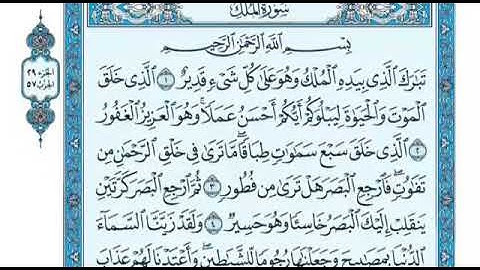 سُورَةُ المُلْكِ
بِسْمِ اللَّهِ الرَّحْمَٰنِ الرَّحِيمِ
تَبَٰرَكَ الَّذِي بِيَدِهِ الْمُلْكُ وَهُوَ عَلَىٰ كُلِّ شَيْءٍ قَدِيرٌ ١ الَّذِي خَلَقَ
الْمَوْتَ وَالْحَيَوٰةَ لِيَبْلُوَكُمْ أَيُّكُمْ أَحْسَنُ عَمَلًا ۚ وَهُوَ الْعَزِيزُ الْغَفُورُ
٢ الَّذِي خَلَقَ سَبْعَ سَمَٰوَٰتٍ طِبَاقًا ۖ مَّا تَرَىٰ فِي خَلْقِ الرَّحْمَٰنِ مِن
تَفَٰوُتٍ ۖ فَارْجِعِ الْبَصَرَ هَلْ تَرَىٰ مِن فُطُورٍ ٣ ثُمَّ ارْجِعِ الْبَصَرَ كَرَّتَيْنِ
يَنقَلِبْ إِلَيْكَ الْبَصَرُ خَاسِئًا وَهُوَ حَسِيرٌ ٤ وَلَقَدْ زَيَّنَّا السَّمَآءَ
الدُّنْيَا بِمَصَٰبِيحَ وَجَعَلْنَٰهَا رُجُومًا لِّلشَّيَٰطِينِ ۖ وَأَعْتَدْنَا لَهُمْ عَذَابَ
الجزء ٢٩
الحزب ٥٧